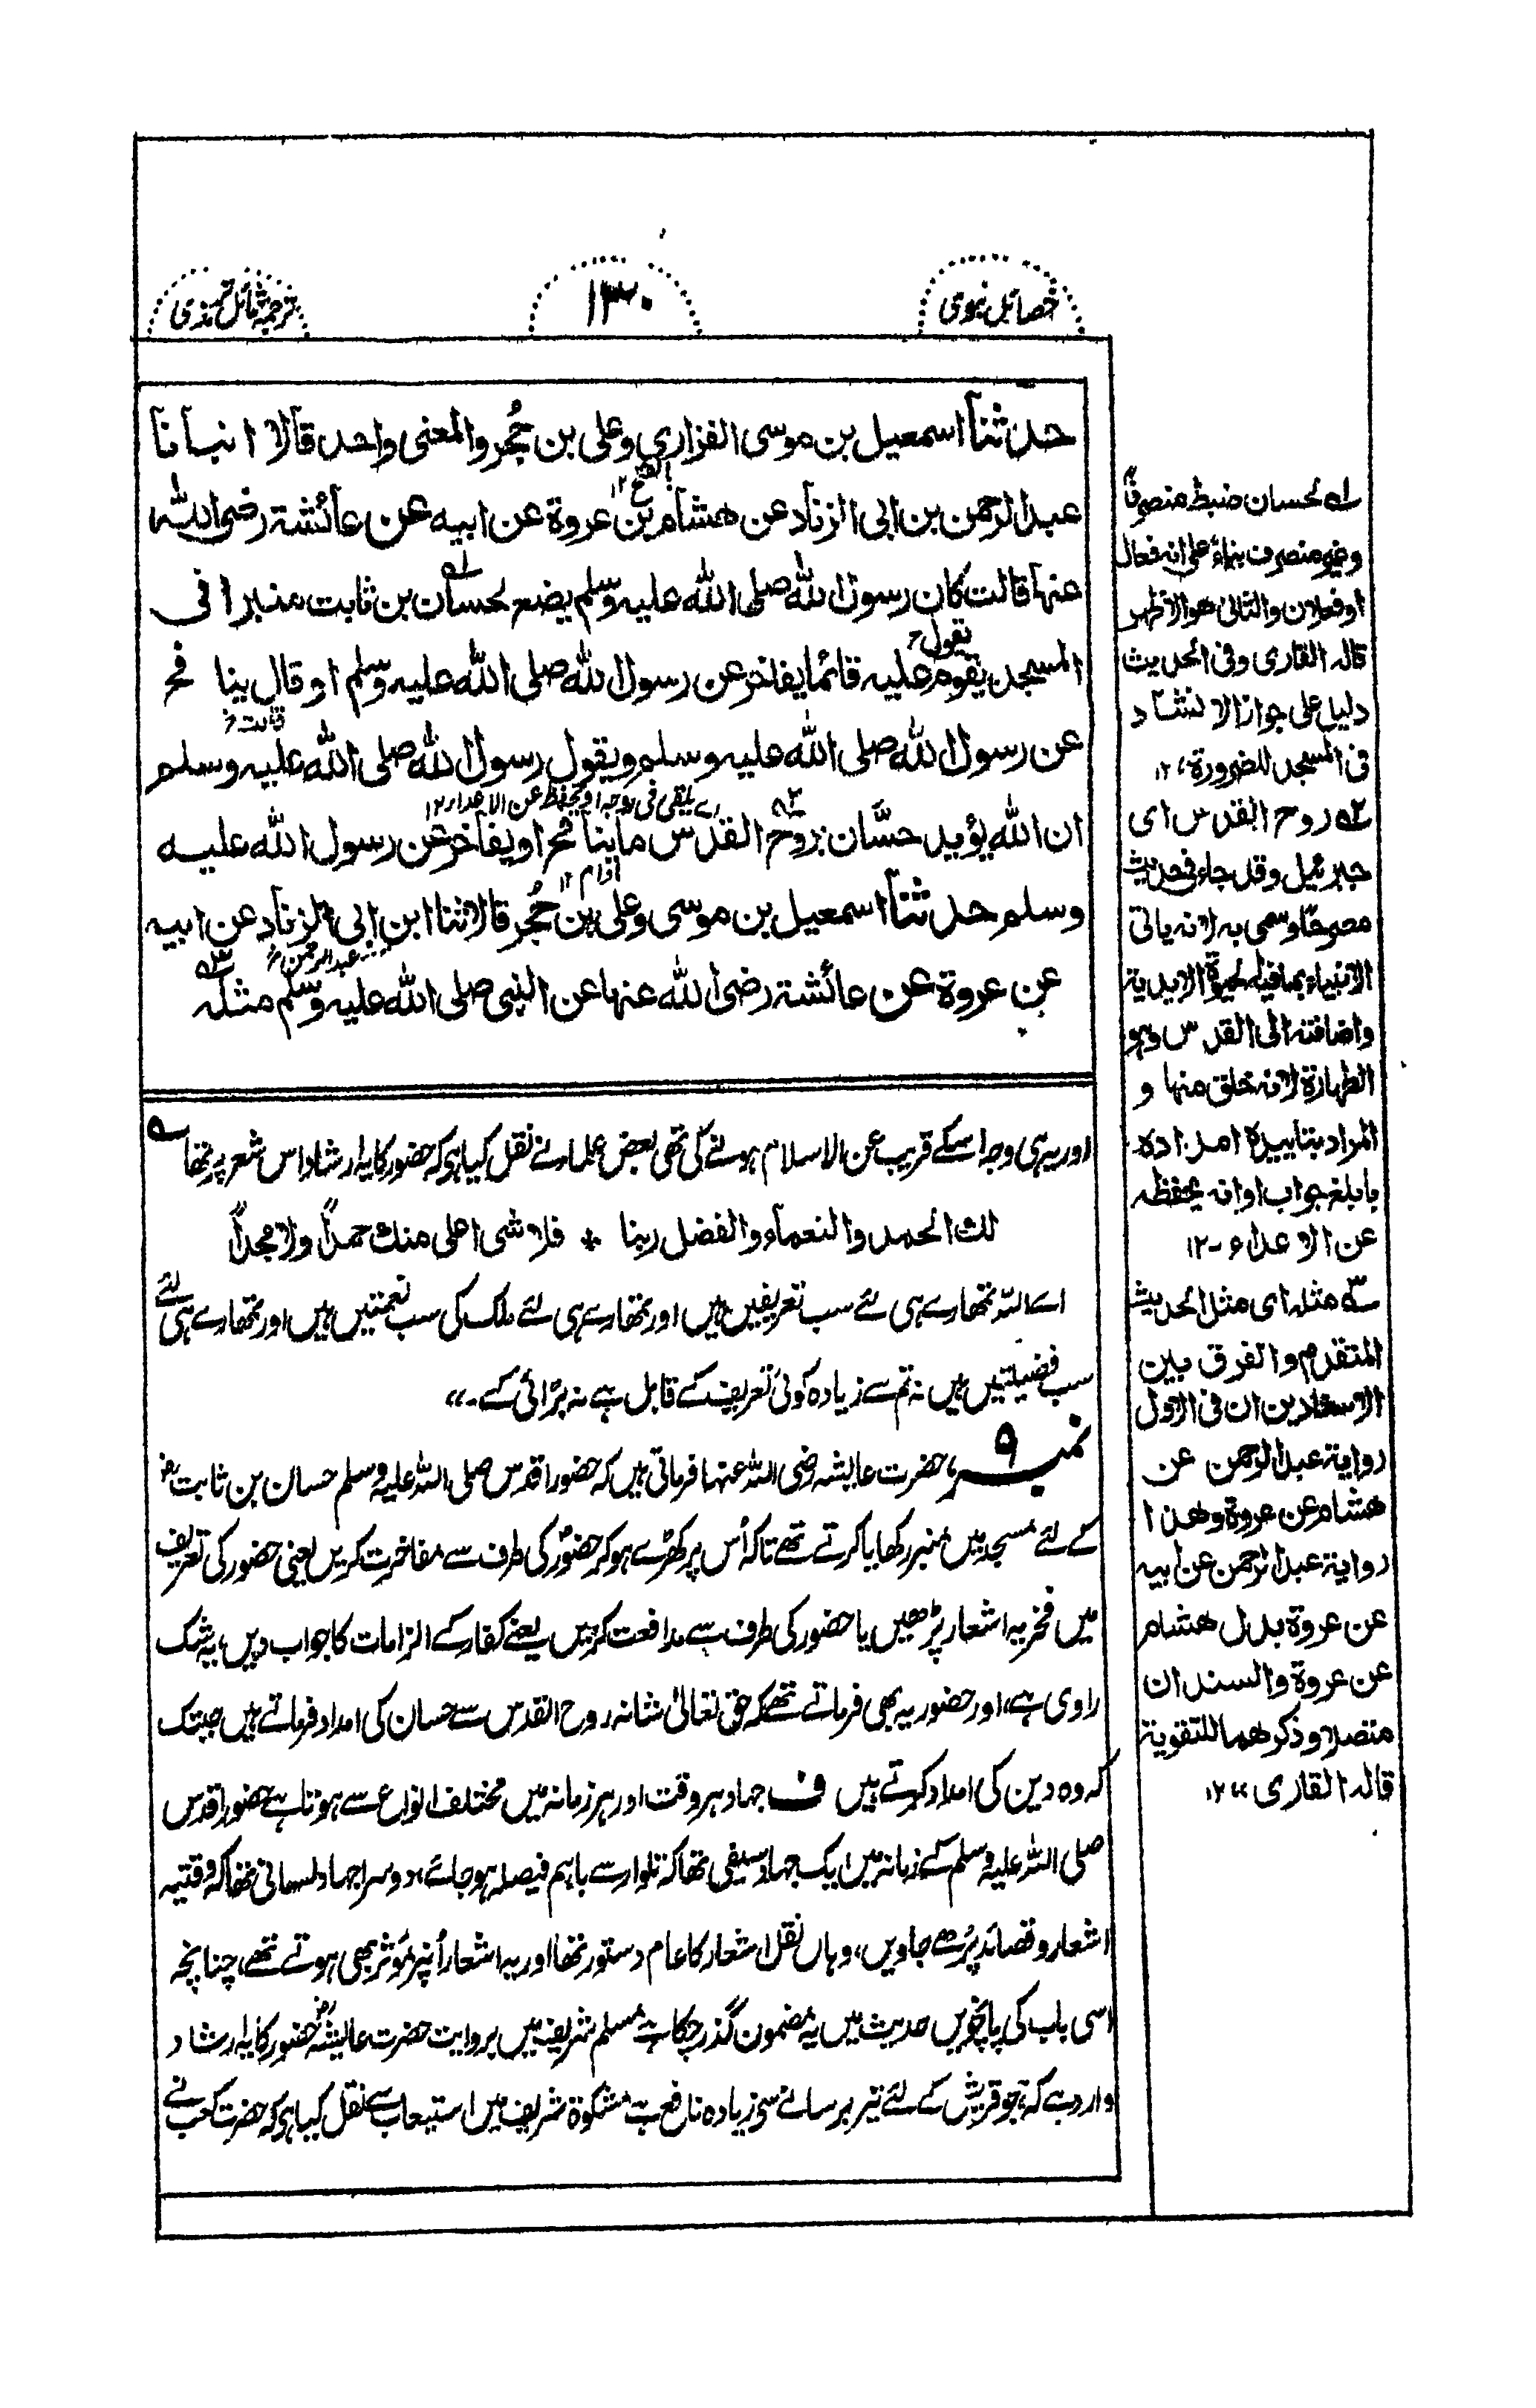 خصائل نبوی
۱۳۰
ترجمہ شمائل ترمذی
حدثنا اسمعیل بن موسی الفزاری وعلی بن حُجر والمعنی واحد قالا انبأنا
عبد الرحمن بن ابی الزناد عن هشام بن عروة عن ابیه عن عائشة رضی الله
عنها قالت كان رسول الله صلی الله علیه وسلم یضع لحسان بن ثابت منبرا فی
یقول
المسجد یقوم علیه قائما یفاخر عن رسول الله صلی الله علیه وسلم او قال ینافح
قالت
عن رسول الله صلی الله علیه وسلم ویقول رسول الله صلی الله علیه وسلم
ان الله یؤید حسَّان بروح القدس ما ینافح او یفاخر عن رسول الله علیه
ای مادام ۱۲
وسلم حدثنا اسمعیل بن موسی وعلی بن حُجر قالا ثنا ابن ابی الزناد عن ابیه
عبد الرحمن
عن عروة عن عائشة رضی الله عنها عن النبی صلی الله علیه وسلم مثله
اور یہی وجہ اسکے قریب عن الاسلام ہونے کی تھی بعض علماء نے نقل کیا ہی کہ حضور کا یہ ارشاد اس شعر پر تھا ؎
لك الحمد والنعمآء والفضل ربنا * فلا شی اعلی منك حمداً ولا مجداً
اے اللہ تمھارے ہی لئے سب تعریفیں ہیں اور تمھارے ہی لئے ملک کی سب نعمتیں ہیں اور تمھارے ہی لئے
سب فضیلتیں ہیں نہ تم سے زیادہ کوئی تعریف کے قابل ہے نہ بڑائی کے۔،،
نمبر ۹، حضرت عایشہ رضی اللہ عنہا فرماتی ہیں کہ حضور اقدس صلی اللہ علیہ وسلم حسان بن ثابت رض
کے لئے مسجد میں منبر رکھایا کرتے تھے تاکہ اُس پر کھڑے ہو کر حضورؐ کی طرف سے مفاخرت کریں یعنی حضور کی تعریف
میں فخریہ اشعار پڑھیں یا حضور کی طرف سے مدافعت کریں یعنے کفار کے الزامات کا جواب دیں، یہ شک
راوی ہے، اور حضور یہ بھی فرماتے تھے کہ حق تعالیٰ شانہ روح القدس سے حسان کی امداد فرماتے ہیں جبتک
کہ وہ دین کی امداد کرتے ہیں ف جہاد ہر وقت اور ہر زمانہ میں مختلف انواع سے ہوتا ہے حضور اقدس
صلی اللہ علیہ وسلم کے زمانہ میں ایک جہاد سیفی تھا کہ تلوار سے باہم فیصلہ ہو جائے، دوسرا جہاد لسانی تھا کہ وقتیہ
اشعار و قصائد پڑھے جاویں، وہاں نقل اشعار کا عام دستور تھا اور یہ اشعار اُنپر مؤثر بھی ہوتے تھے، چنانچہ
اسی باب کی پانچویں حدیث میں یہ مضمون گذر چکا ہے مسلم شریف میں بروایت حضرت عایشہ رض حضور کا یہ ارشاد
وارد ہے کہ ہجو قریش کے لئے تیر برسانے سی زیادہ نافع ہے مشکوة شریف میں استیعاب سے نقل کیا ہی کہ حضرت کعب نے
؎۱ لحسان ضبط منصرفاً
وغیر منصرف بناءً علی انه فعال
او فعلان والثانی هو الاظهر
قاله القاری وفی الحدیث
دلیل علی جواز الانشاد
فی المسجد للضرورة،، ۱۲
؎۲ روح القدس ای
جبرئیل وقد جاء فی حدیث
مصرحًا وسمی به لانه یاتی
الانبیاء بما فیه الحیوة الابدیة
واضافته الی القدس وهو
الطهارة لانه خلق منها و
المراد بتاییده امداده
بابلغ جواب او انه یحفظه
عن الاعداء ۔۱۲
؎۳ مثله ای مثل الحدیث
المتقدم والفرق بین
الاسنادین ان فی الاول
روایة عبد الرحمن عن
هشام عن عروة وهذا
روایة عبد الرحمن عن ابیه
عن عروة بدل هشام
عن عروة والسندان
متصلا وذكرهما للتقویة
قاله القاری ،، ۱۲